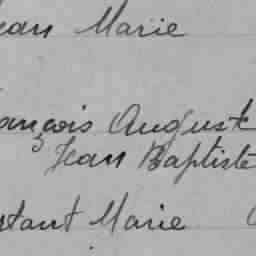 Jean Marie
ançois August
Jean Baptiste
stant Marie